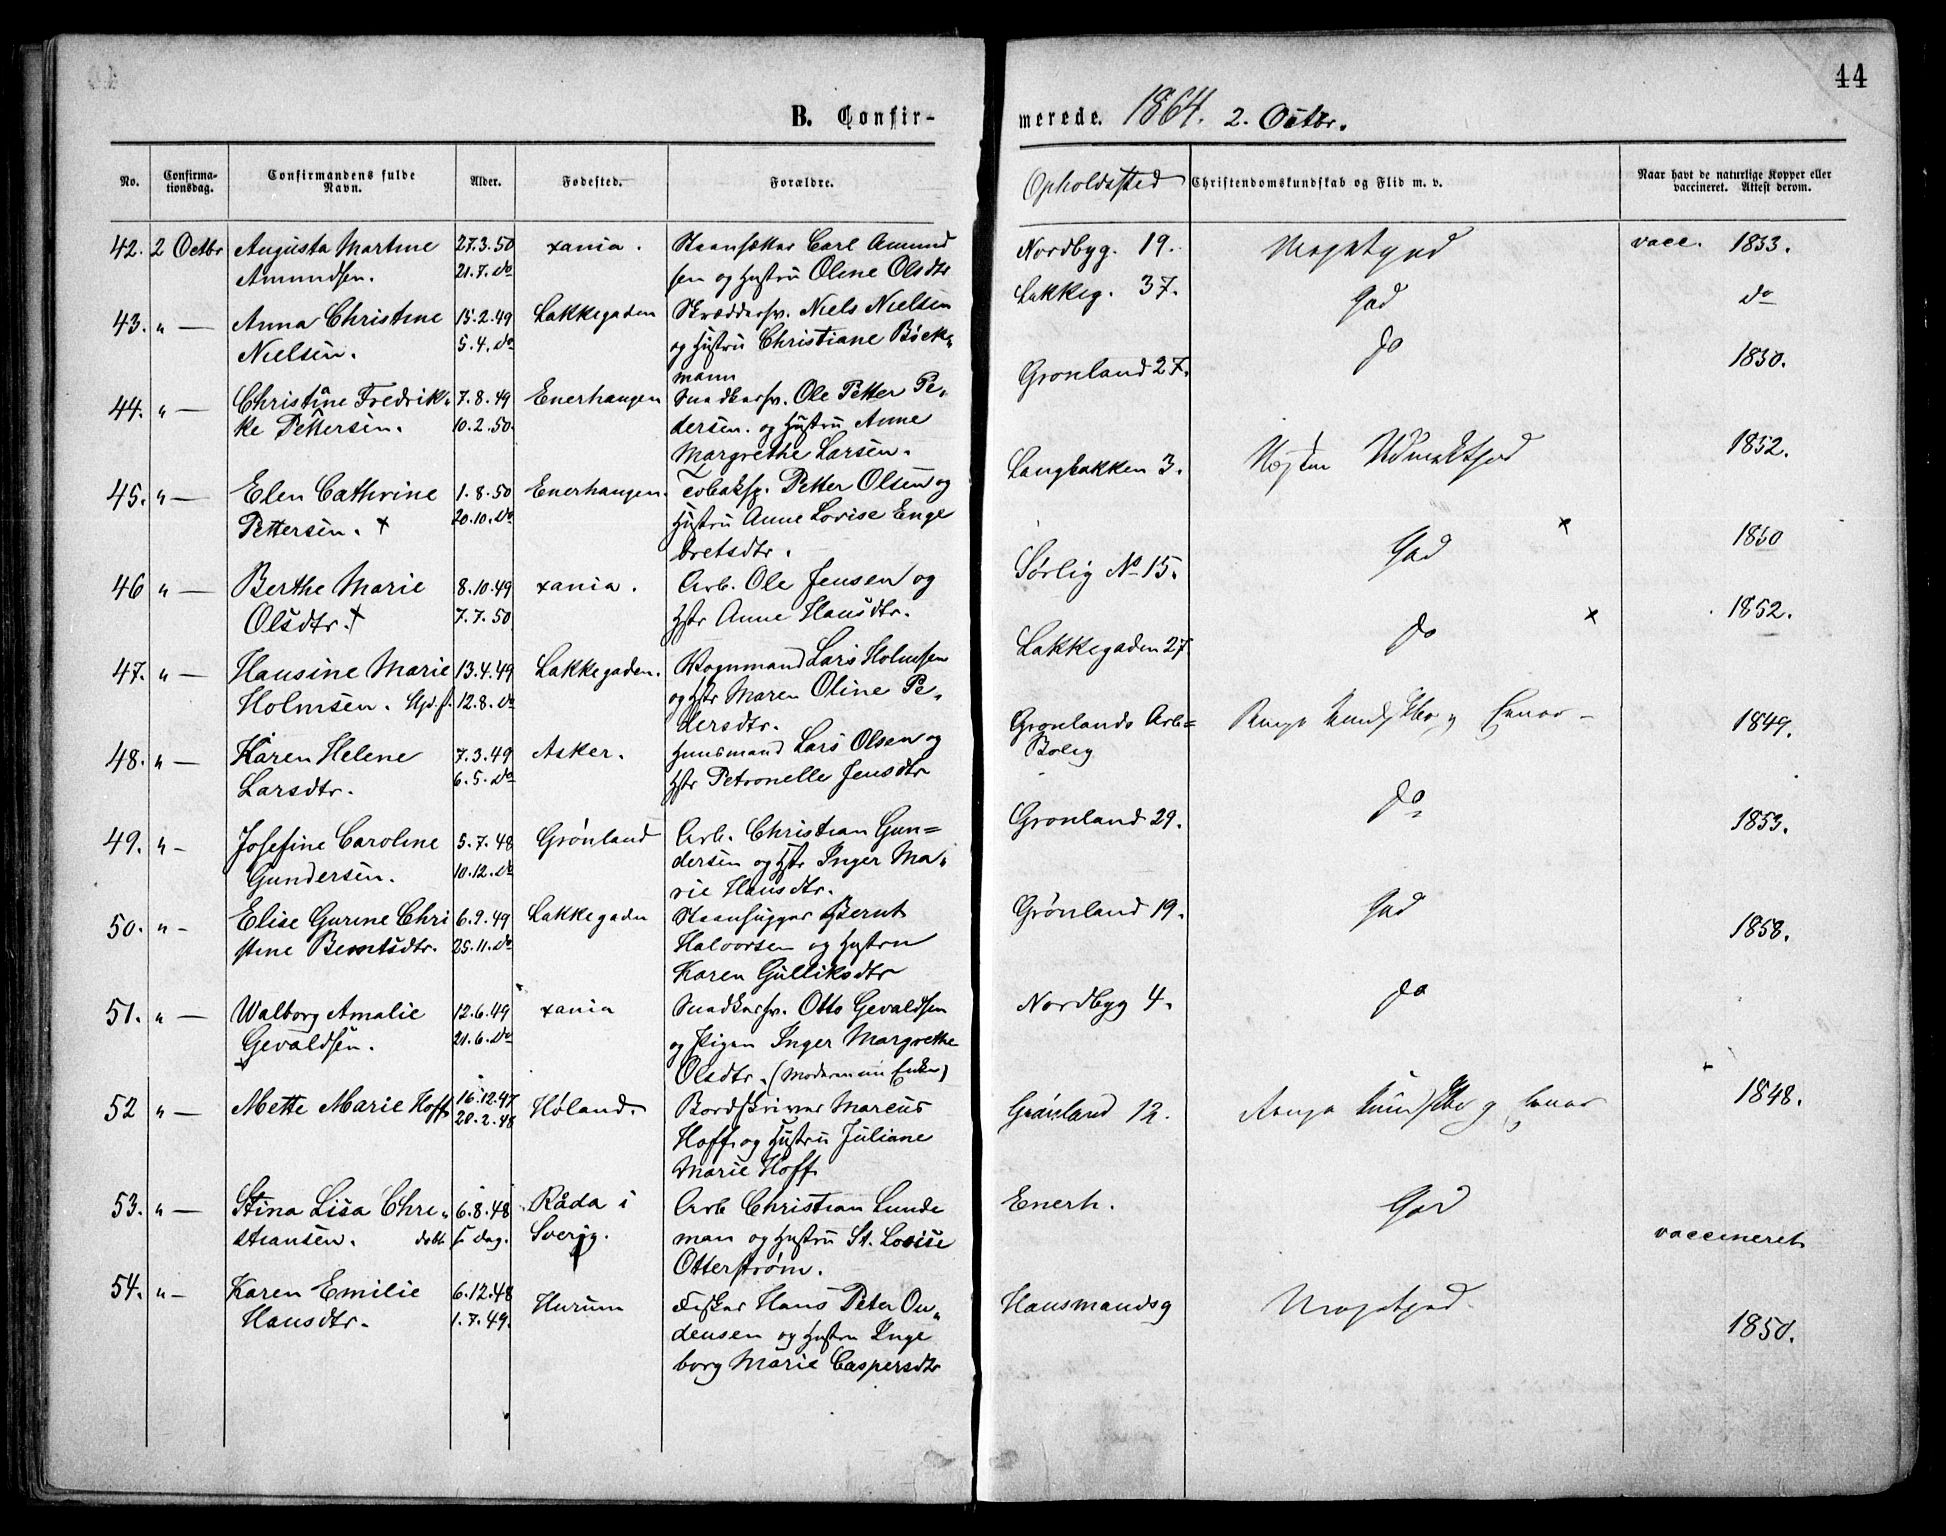 44
B. Confir-
merede. 1864. 2. Octbr.
No.
Confirma-
tionsdag.
Confirmandens fulde
Navn.
Alder.
Fødested.
Forældre.
Opholdssted
Christendomskundskab og Flid m. v.
Naar havt de naturlige Kopper eller
vaccineret. Attest derom.
42. 2 Octbr Augusta Martine 27.3.50 xania. Carl Amund
Amundsen. 21.7. do sen og Hustru Oline Olsdtr
Nordbyg. 19. Megetgod vacc. 1853.
43. " — Anna Christine 15.2.49 Lakkegaden Skræddersv. Niels Nielsen
Nielsen. 5.4. do og Hustru Christiane Böck-
mann
Lakkeg. 37. God do
44. " — Christine Fredrik- 7.8.49 Enerhaugen Snedkersv. Ole Petter Pe-
ke Pettersen. 10.2.50. dersen. og Hustru Anne
Margrethe Larsen.
Gronland 27. do 1850.
45. " — Elen Cathrine 1.8.50 Enerhaugen. Tobaksp. Petter Olsen og
Pettersen. x 20.10. do Hustru Anne Lovise Enge
bretsdtr.
Langbakken 3. 1852.
46 " — Berthe Marie 8.10.49 xania. Arb. Ole Jensen og
Olsdtr. x 7.7.50 Hstr Anne Hansdtr.
Sørlig No 15. God x 1850
47. " — Hansine Marie 13.4.49 Lakkegaden. Vognmand Lars Holmsen
Holmsen. 12.8. do og Hstr Maren Oline Pe-
dersdtr.
Lakkegaden 27 do x 1852.
48. " — Karen Helene 7.3.49 Asker. Huusmand Lars Olsen og
Larsdtr. 6.5. do Hstr Petronelle Jensdtr
Gronlands Arb=
Bolig
1849.
49. " - Josefine Caroline 5.7.48 Grønland Arb. Christian Gun=
Gundersen. 10.12. do dersen og Hstr Inger Ma-
rie Hansdtr.
Gronland 29. do 1853.
50. " - Elise Gurine Chri 6.9.49 Lakkegaden Steenhugger Bernt
stine Berntsdtr. 25.11. do Halvorsen og Hustru
Karen Gulliksdtr
Grønland 19. God 1858.
51. " — Walborg Amalie 12.6.49 xania Snedkersv. Otto Gevaldsen
Gevaldsen. 21.6. do og Pigen Inger Margrethe
Olsdtr. (Moderen nu Enke)
Nordbyg 4. do
52 " — Mette Marie Hoff 16.12.47 Høland. Bordskriver Marcus
20.2.48 Hoff og Hustru Juliane
Marie Hoff
Grønland 12. 1848.
53. " — Stina Lisa Chri- 6.8.48 Råda i Arb Christian Lunde
stiansen. døbt s. dag. Sverig. man og Hustru St. Lovise
Otterstrøm.
Enerh. God vaccineret
54. " - Karen Emilie 6.12.48 Hurum Fisker Hans Peter On-
Hansdtr. 1.7.49. densen og Hustru Inge
borg Marie Caspersdtr
Hausmandsg Megetgod. 1850.